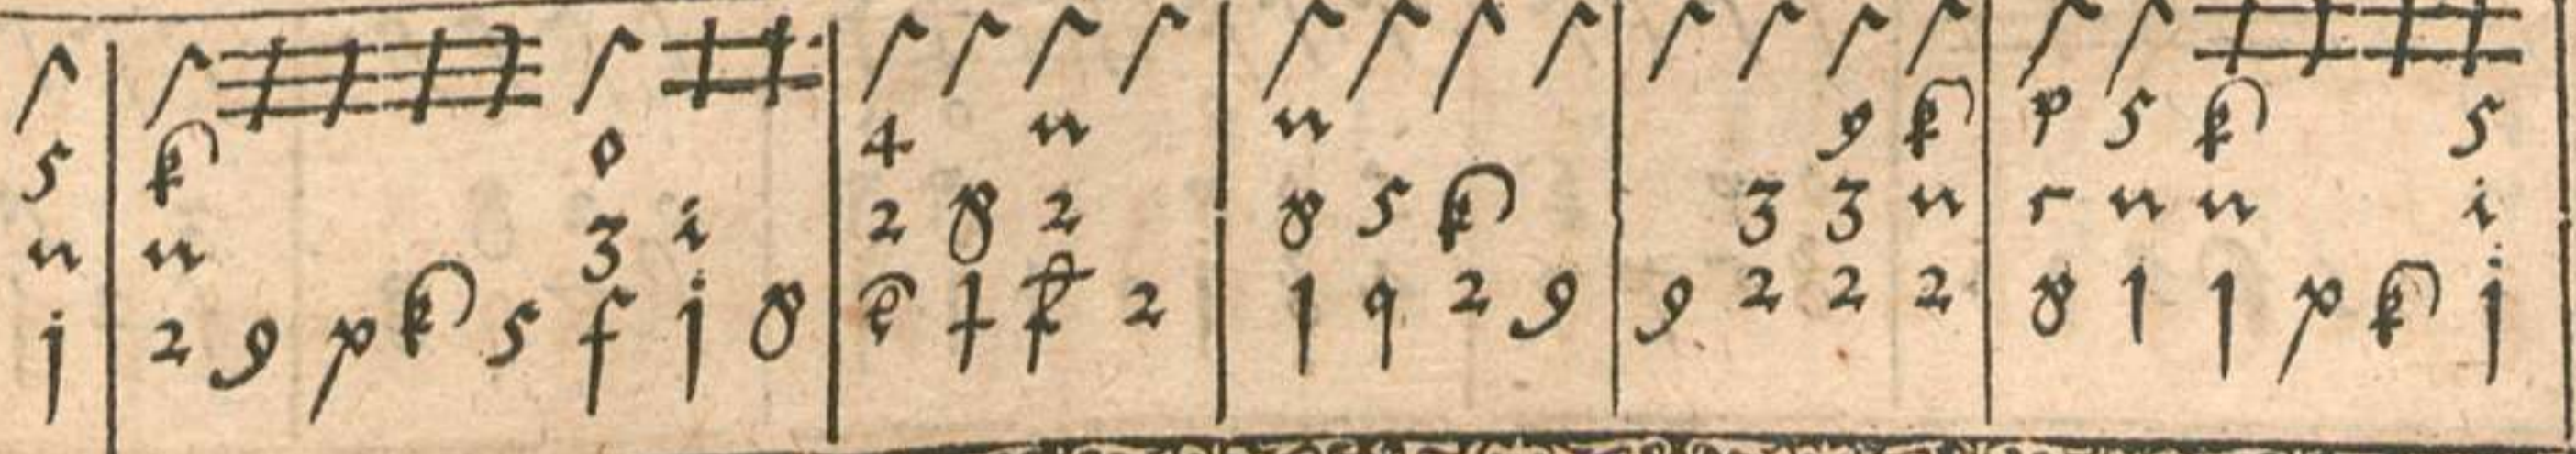 5 k o 4 n n 9 k p 5 k 5
n n 3 i 2 8 2 8 5 k 3 3 n r n n i
j 2 9 p k 5 f j 8 e t 2 1 q 2 9 9 2 2 2 8 1 1 p k j